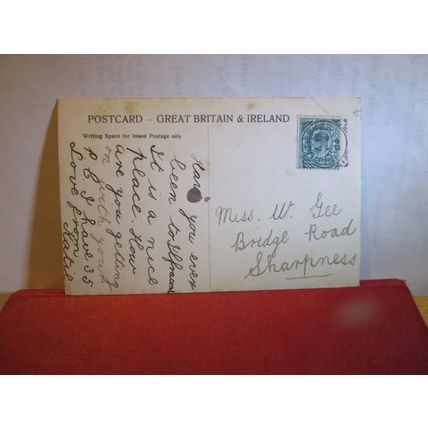 POSTCARD – GREAT BRITAIN & IRELAND
Writing Space for Inland Postage only.
Have you ever
been to Ilfracombe
It is a nice
place. How
are you getting
on with your
p c I have 35
Love from
Katie
Miss. W. Gee
Bridge Road
Sharpness